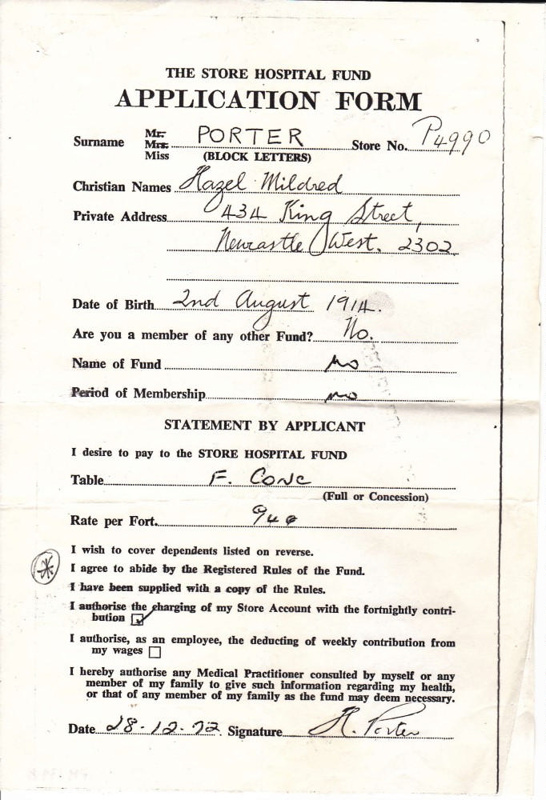 THE STORE HOSPITAL FUND
APPLICATION FORM
Surname Mr. Mrs. Miss PORTER Store No. P4990
(BLOCK LETTERS)
Christian Names Hazel Mildred
Private Address 434 King Street,
Newcastle West. 2302
Date of Birth 2nd August 1914.
Are you a member of any other Fund? No.
Name of Fund no
Period of Membership no
STATEMENT BY APPLICANT
I desire to pay to the STORE HOSPITAL FUND
Table F. Conc
(Full or Concession)
Rate per Fort.
I wish to cover dependents listed on reverse.
I agree to abide by the Registered Rules of the Fund.
I have been supplied with a copy of the Rules.
I authorise the charging of my Store Account with the fortnightly contri-
bution
I authorise, as an employee, the deducting of weekly contribution from
my wages
I hereby authorise any Medical Practitioner consulted by myself or any
member of my family to give such information regarding my health,
or that of any member of my family as the fund may deem necessary.
Date 28.12.72 Signature H. Porter